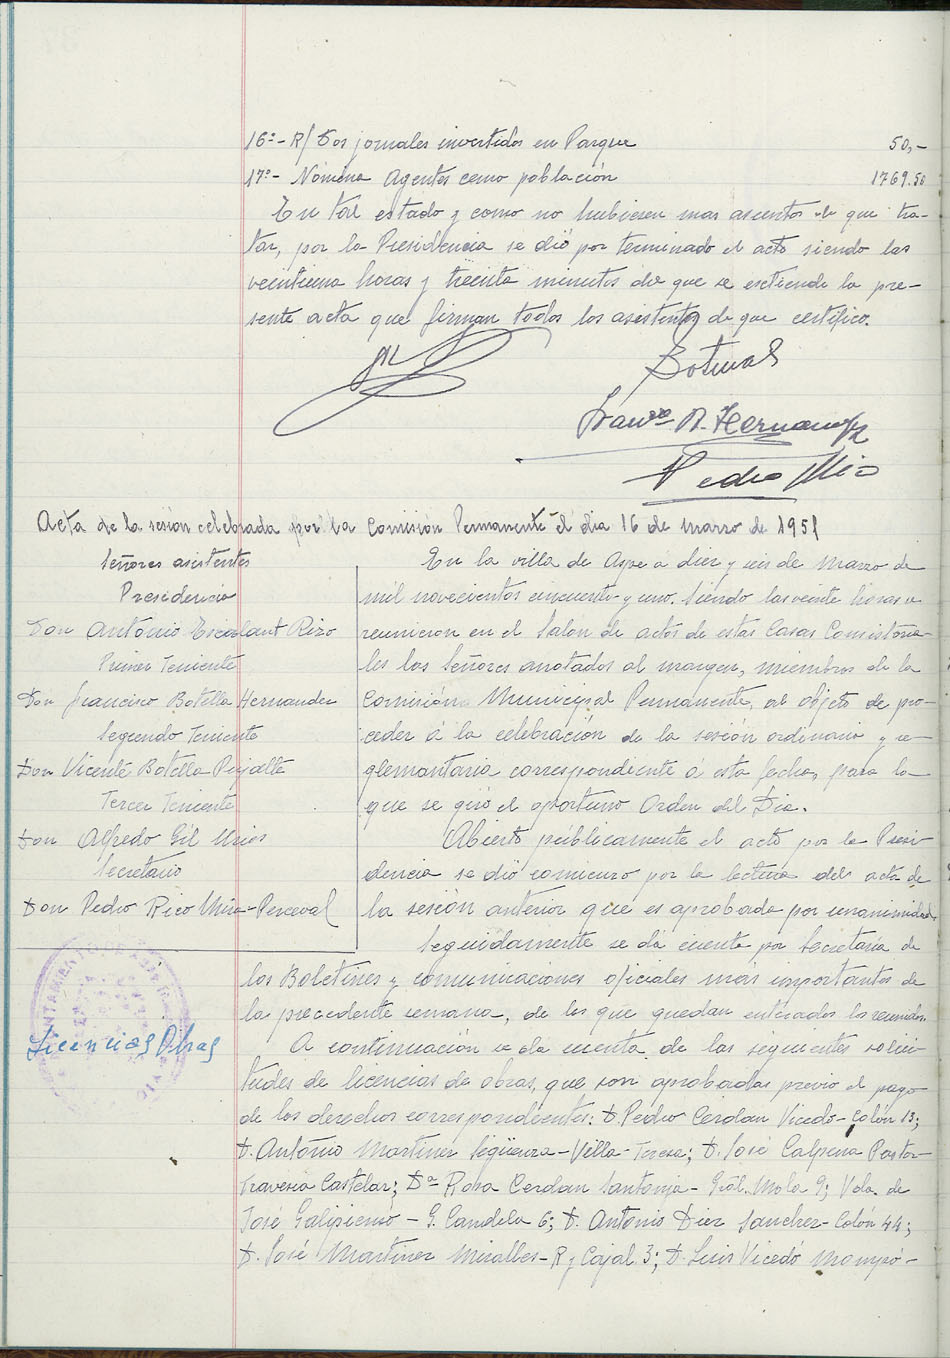 16º- R/ Dos jornales invertidos en Parque 50,-
17º- Nómina Agentes censo población 1769.50
En tal estado y como no hubiesen mas asuntos de que tra-
tar, por la Presidencia se dió por terminado el acto siendo las
veintiuna horas y treinta minutos de que se extiende la pre-
sente acta que firman todos los asistentes de que certifico.
Botella
Franco B. Hernandez
Pedro Rico
Acta de la sesión celebrada por la Comisión Permanente el dia 16 de marzo de 1951
Señores asistentes
Presidencia
Don Antonio Escolant Rizo
Primer Teniente
Don Francisco Botella Hernandez
Segundo Teniente
Don Vicente Botella Pujalte
Tercer Teniente
Don Alfredo Gil Urios
Secretario
Don Pedro Rico Mira-Perceval
En la villa de Aspe a diez y seis de Marzo de
mil novecientos cincuenta y uno. Siendo las veinte horas se
reunieron en el Salón de actos de estas Casas Consistoria-
les los Señores anotados al margen, miembros de la
Comisión Municipal Permanente, al objeto de pro-
ceder á la celebración de la sesión ordinaria y re-
glamentaria correspondiente á esta fecha, para la
que se giró el oportuno Orden del Dia.
Abierto públicamente el acto por la Presi-
dencia se dió comienzo por la lectura del acta de
la sesión anterior que es aprobada por unanimidad.
Seguidamente se dá cuenta por Secretaría de
los Boletines y comunicaciones oficiales mas importantes de
la precedente semana, de los que quedan enterados los reunidos.
Licencias Obras
A continuación se da cuenta de las siguientes solici-
tudes de licencias de obras, que son aprobadas previo el pago
de los derechos correspondientes: D. Pedro Cerdan Vicedo-Colón 13;
D. Antonio Martinez Sigüenza-Villa-Teresa; D. José Calpena Pastor-
Travesia Castelar; Dª Rosa Cerdan Santonja-Gral. Mola 9; Vda. de
José Galipienso - G. Candela 6; D. Antonio Diez Sanchez-Colón 44;
D. José Martinez Miralles-R y Cajal 3; D. Luis Vicedó Mompó-